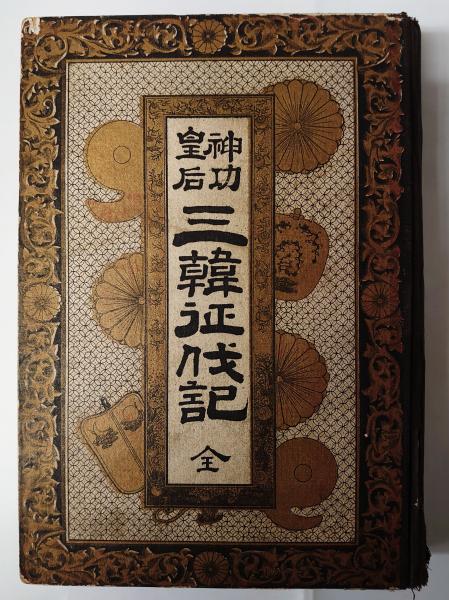 神功皇后
三韓征伐記
全